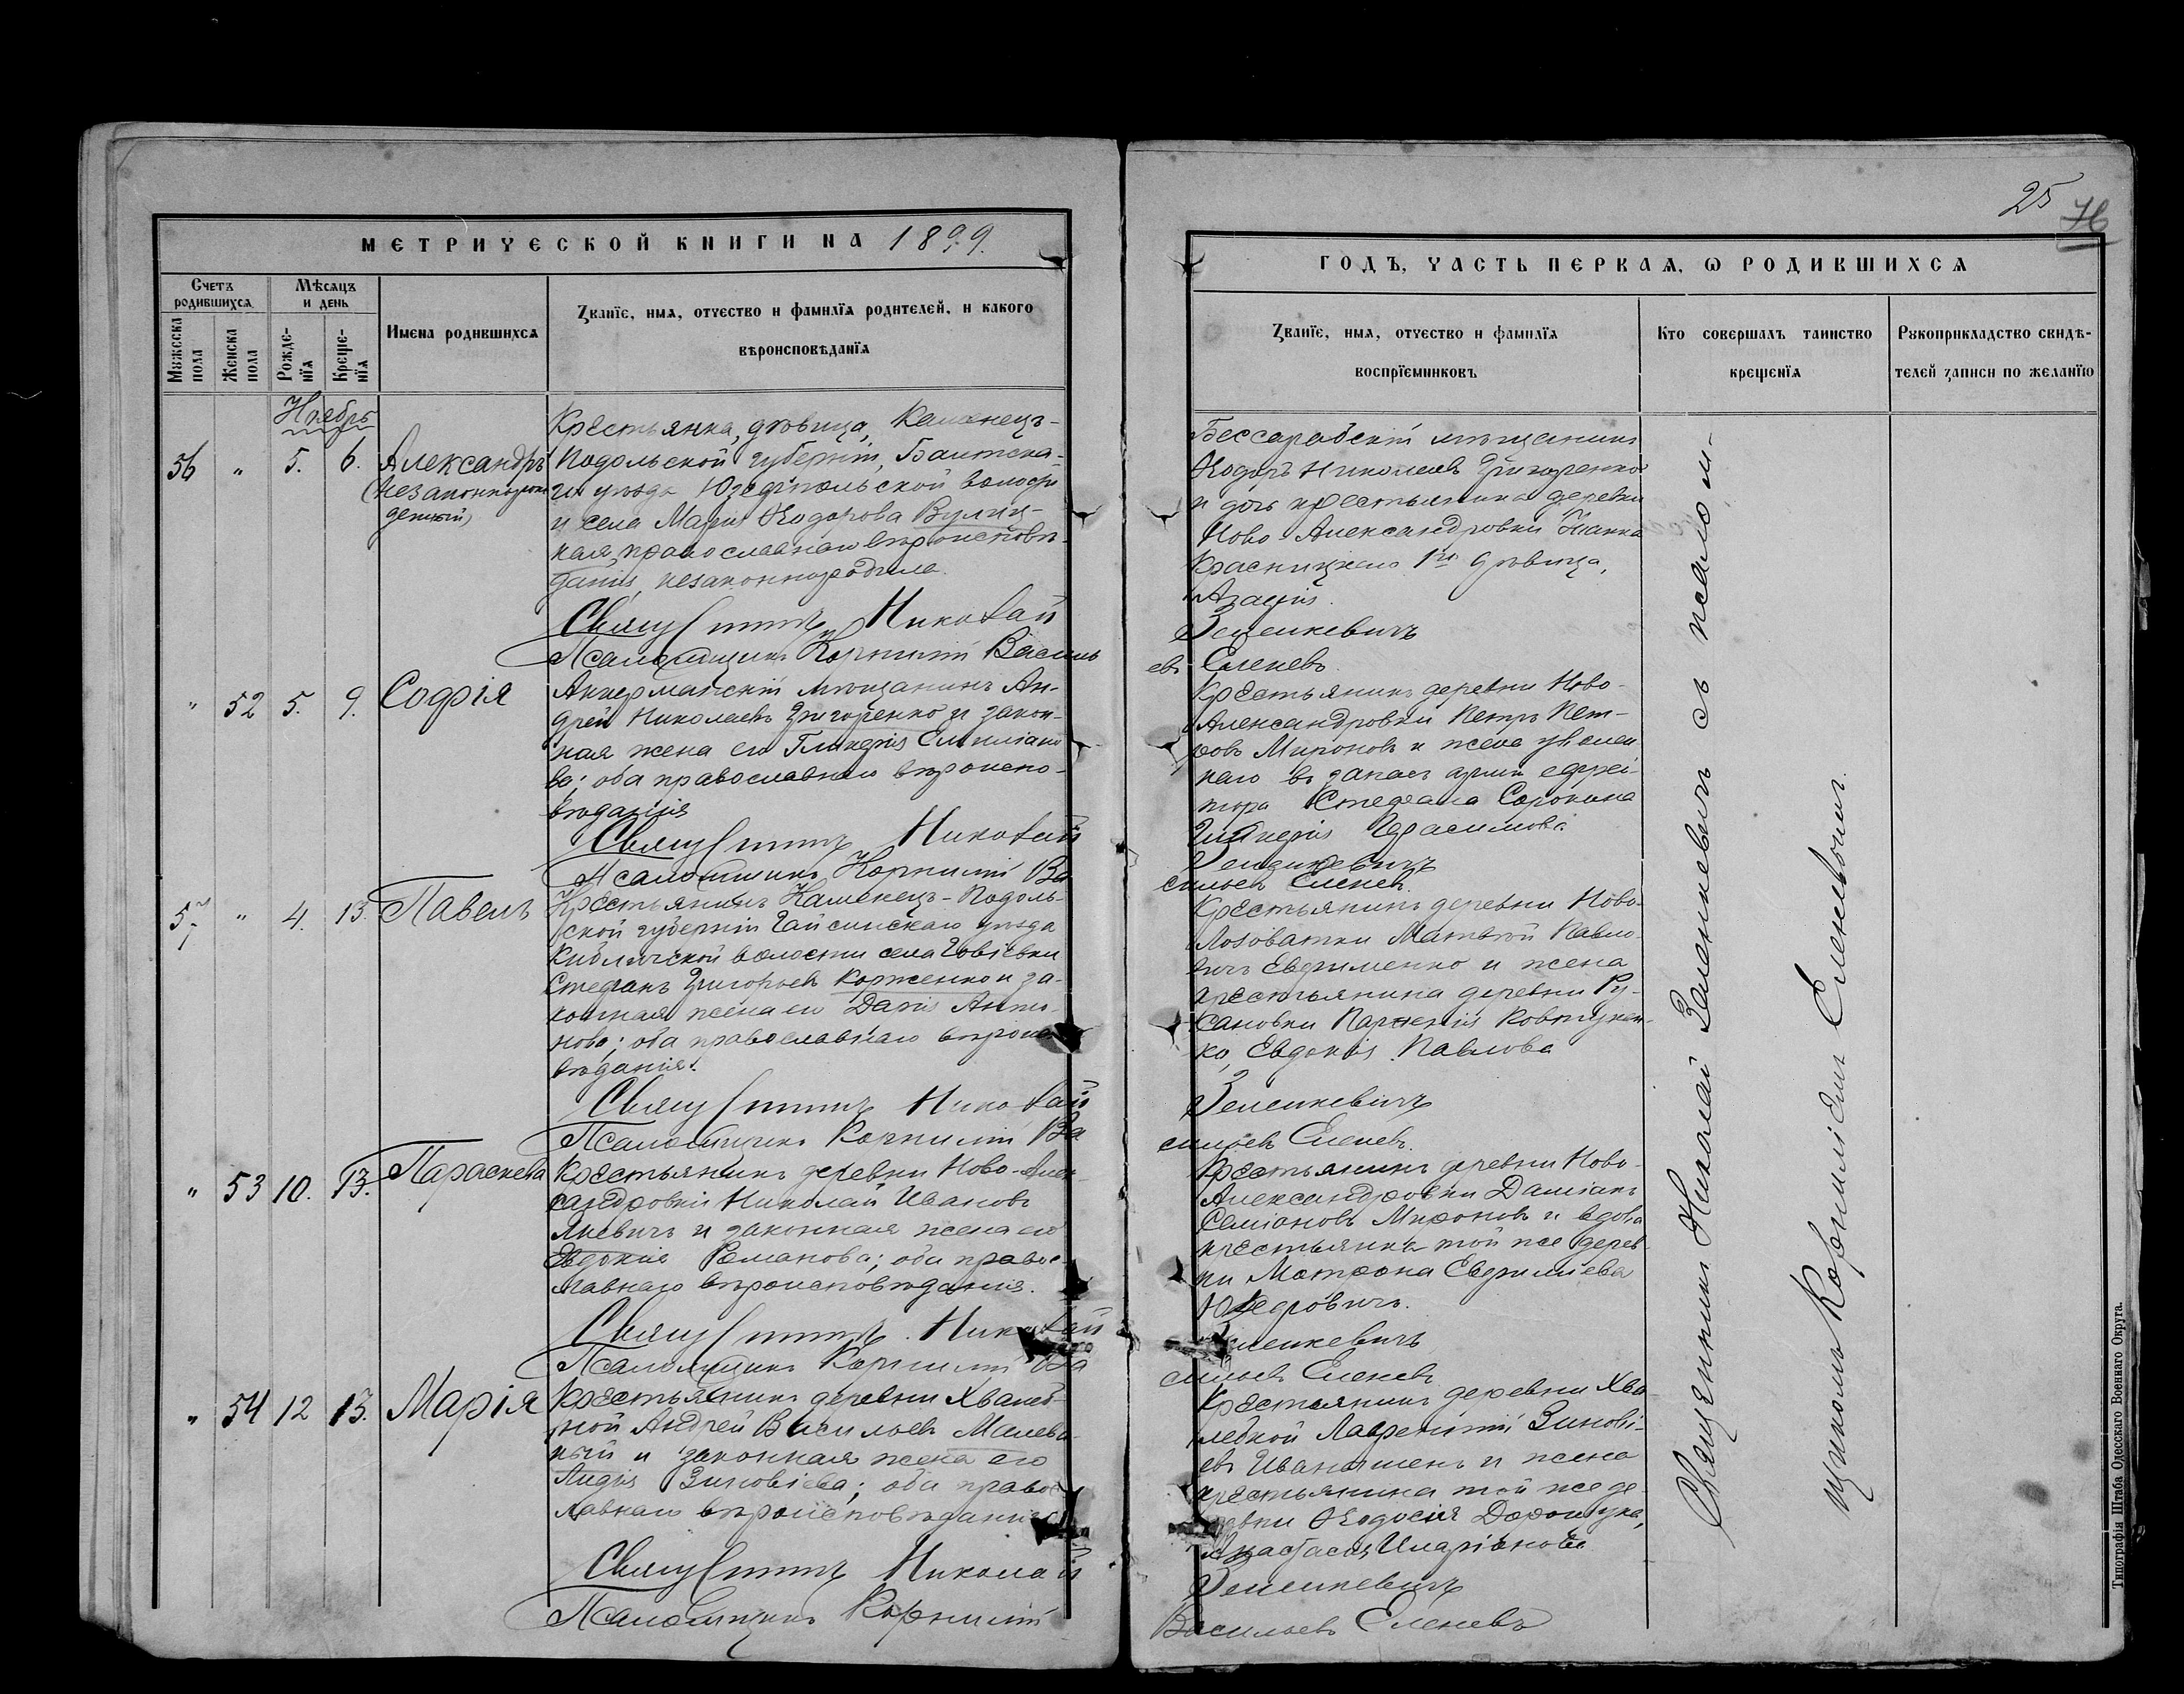 МЕТРИЧЕСКОЙ КНИГИ НА 1899.
Счетъ родившихся
Мѣсяцъ и день
Мужеска пола
Женска пола
Рожденїя
Крещенїя
Имена родившихся
Званїе, имя, отчество и фамилїя родителей, и какого
вѣроисповѣданїя
Ноябрь
56 " 5. 6. Александръ
(незаконнорож
денный)
Крестьянка, дѣвица, Каменецъ-
Подольской губерніи, Балтска-
го уѣзда Юзефпольской волости
и села Марія Ѳеодорова Вулиц-
кая, православнаго вѣроисповѣ-
данія, незаконнородила.
Священникъ Николай
Псаломщикъ Корнилій Василь
" 52 5. 9. Софія
Аккерманскій мѣщанинъ Ан-
дрей Николаевъ Григоренко и закон-
ная жена его Гликерія Емиліано
ва; оба православнаго вѣроиспо-
вѣданія
Священникъ Николай
Псаломщикъ Корнилій Ва
57 " 4. 13. Павелъ
Крестьянинъ Каменецъ-Подоль-
ской губерніи Гайсинскаго уѣзда
Киблической волости села
Стефанъ Григорьевъ Корженко и за-
конная жена его Дарія
нова; оба православнаго вѣроиспо
вѣданія.
Священникъ Николай
Псаломщикъ Корнилій Ва
" 53 10. 13. Параскева
Крестьянинъ деревни Ново-Алек-
сандровки Николай Ивановъ
Яневичъ и законная жена его
Евдокія Романова; оба правос-
лавнаго вѣроисповѣданія.
Священникъ Николай
Псаломщикъ Корнилій Ва
" 54 12 13. Марія
Крестьянинъ деревни Хвалеб-
ной Андрей Васильевъ Малева-
ный и законная жена его
Лидія Зиновіева; оба правос
лавнаго вѣроисповѣданія
Священникъ Николай
Псаломщикъ Корнилій
25
76
ГОДЪ, ЧАСТЬ ПЕРВАЯ, Ѡ РОДИВШИХСЯ
Званїе, имя, отчество и фамилїя
воспрїемниковъ
Кто совершалъ таинство
крещенїя
Рукоприкладство свидѣ-
телей записи по желанїю
Бессарабскій мѣщанинъ
Ѳеодоръ Николаевъ Григоренко
и дочь крестьянина деревни
Ново-Александровки
Красницкаго дѣвица,
Агафія.
Зеленкевичъ
евъ Еленевъ.
Крестьянинъ деревни Ново-
Александровки Петръ Пет-
ровъ Мироновъ и жена уволен
наго въ запасъ арміи ефрей-
тора Стефана Сорокина
Гликерія Герасимова
Зеленкевичъ
сильевъ Еленевъ.
Крестьянинъ деревни Ново-
Лозоватки Матвѣй Павло-
вичъ Евфименко и жена
крестьянина деревни Ру-
сановки Парѳенія Ковтунен-
ко, Евдокія Павлова
Зеленкевичъ
сильевъ Еленевъ.
Крестьянинъ деревни Ново-
Александровки Даміанъ
Мироновъ и вдова
крестьянка той же дерев-
ни Матрона Евфиміева
Зеленкевичъ
сильевъ Еленевъ
Крестьянинъ деревни Хва-
лебной Лаврентій Зиновi-
евъ и жена
крестьянина той же де
ревни Ѳеодосія Дорошука,
Анастасія Иларіонова
Зеленкевичъ
Васильевъ Еленевъ
Священникъ Николай Зеленкевичъ съ псалом-
щикомъ Корниліемъ Еленевымъ.
Типографія Штаба Одесскаго Военнаго Округа.